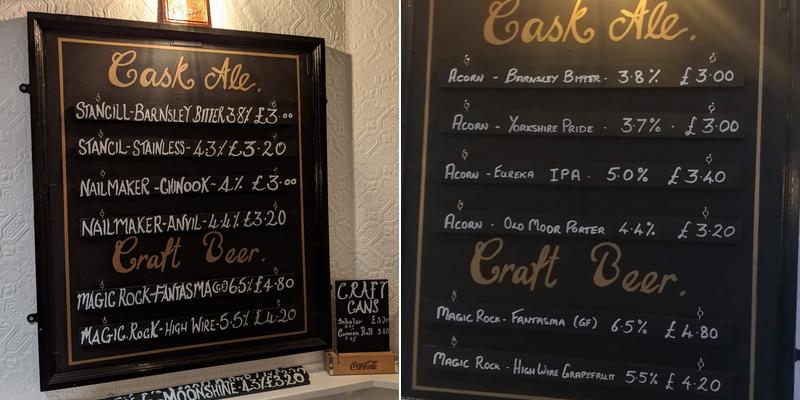 Cask Ale.
STANCILL-BARNSLEY BITTER 3.8% £3.00
STANCIL-STAINLESS-4.3% £3.20
NAILMAKER-CHINOOK-4.% £3.00
NAILMAKER-ANVIL-4.4% £3.20
Craft Beer.
MAGIC ROCK-FANTASMA(GF) 6.5% £4.80
MAGIC ROCK-HIGH WIRE-5.5% £4.20
CRAFT
CANS
Cannon Ball
Coca-Cola
MOONSHINE-4.3% £3.20
Cask Ale.
ACORN - BARNSLEY BITTER - 3.8% £3.00
ACORN - YORKSHIRE PRIDE · 3.7% · £3.00
ACORN - EUREKA IPA · 5.0% £3.40
ACORN · OLD MOOR PORTER 4.4% £3.20
Craft Beer.
MAGIC ROCK - FANTASMA (GF) 6.5% £4.80
MAGIC ROCK - HIGH WIRE GRAPEFRUIT 5.5% £4.20